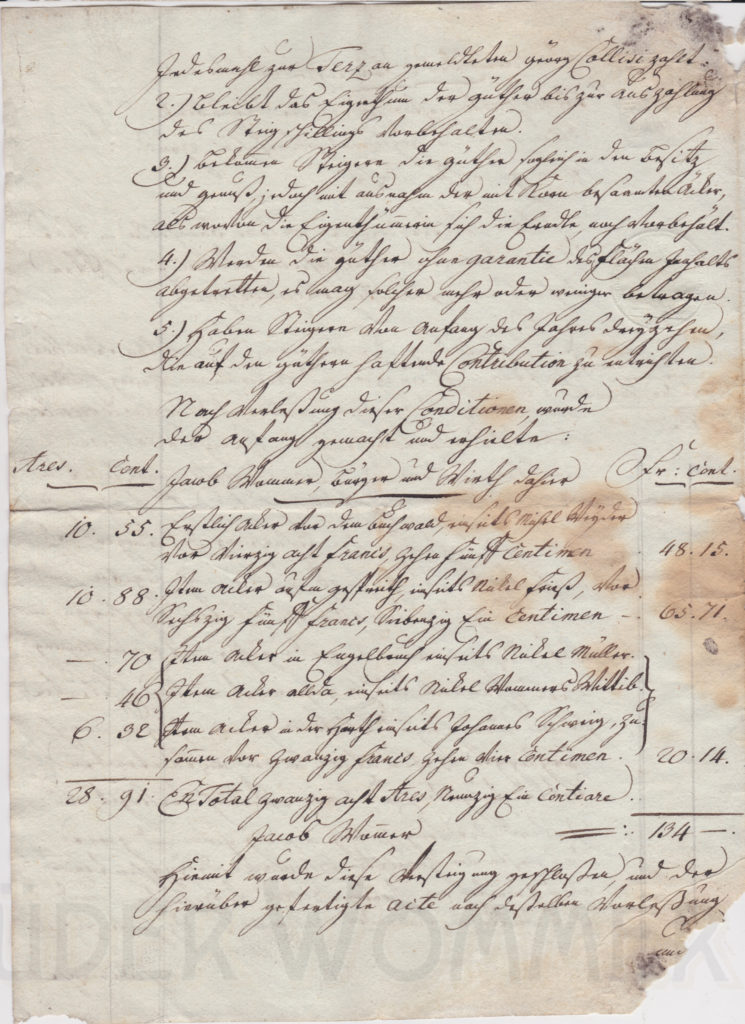 Jedesmahl zur Terz an gemeldleten georg Collisi zahlt.
2.) Bleibt das Eigenthum der güther bis zur Auszahlung
des Steigschillings Vorbehalten.
3.) Bekomen Steigern die güther soglich in den Besitz
und genuß, jedoch mit ausnahm der mit Korn besaamten Äcker,
als wovon die Eigenthümmerin sich die Erndte, noch Vorbehält.
4.) Werden die güther ohne garantie des Flächen Inhalts
abgetretten, es mag solcher mehr oder weniger betragen.
5.) Haben Steigern Von Anfang des Jahres dreyzehen,
die auf den güthern haftende Contribution zu entrichten.
Nach Verleßung dieser Conditionen, wurde
der Anfang gemacht und erhielte:
Ares. Cent. Jacob Wommer, Bürger und Wirth dahier Fr: Cent.
10. 55. Erstlich Aker Vor dem Buchwald, einseits Nikel Weyder
Vor Vierzig acht Francs, Zehen Fünf Centimen 48. 15.
10. 88. Item Acker aufm einseits Nikel Vor
Sechszig Fünf Francs, Siebenzig Ein Centimen 65. 71.
— 70 Item Acker in Engelbruch einseits Nikel Müller.
— 46 Item Acker allda, einseits Nikel Wommers Wittib.
6. 32 Item Acker in der Harth einseits Johannes Schweig, zu-
sammen Vor Zwanzig Francs Zehen Vier Centimen. 20. 14.
28. 91. En Total Zwanzig acht Ares, Neunzig Ein Centiare.
Jacob Wommer 134 —.
Hiemit wurde diese Versteigung geschloßen, und der
hierüber gefertigte acte nach deßelben Vorleßung
und